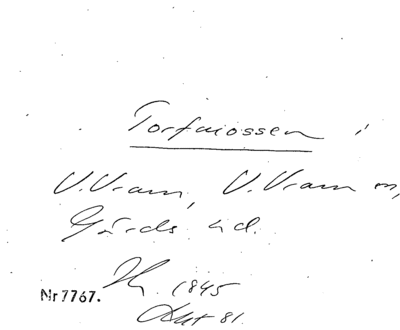 Torfmossen i
V. Vram, V. Vram sn,
Gärds hd.
1845
Nr 7767.
Akt 81.